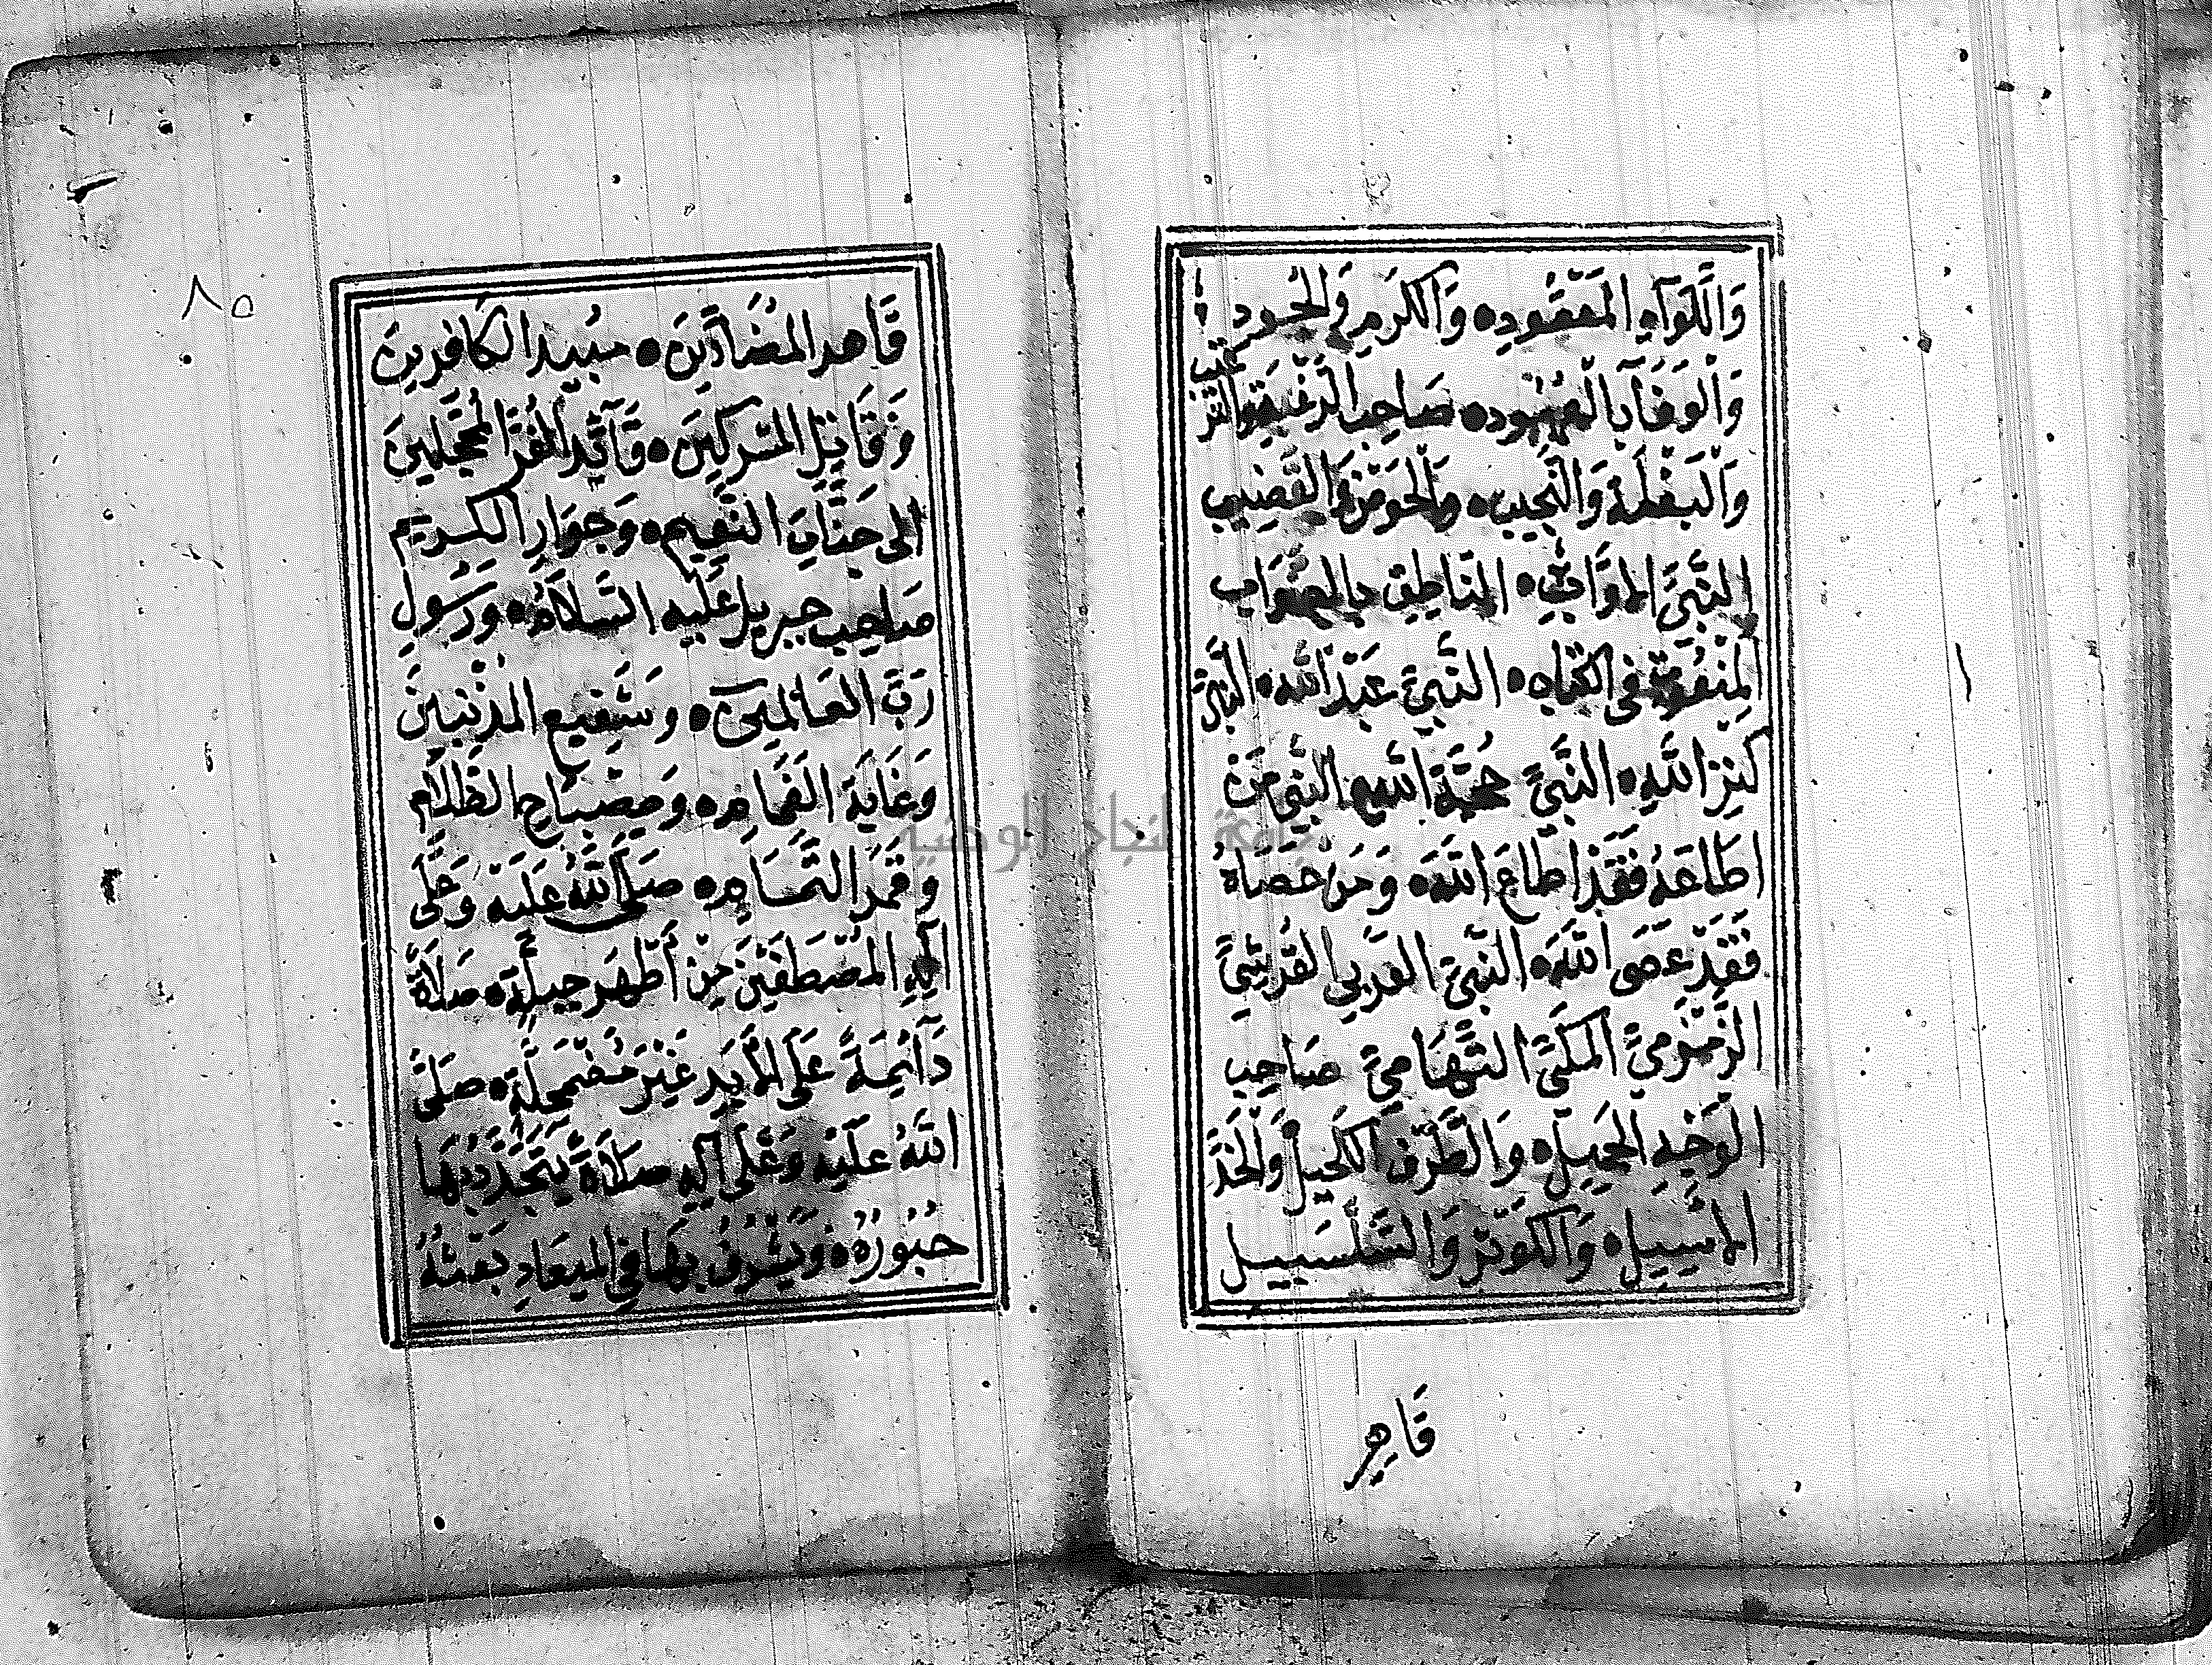 وَاللِّوَآءِ الْمَعْقُودِ ه وَالْكَرَمِ وَالْجُودِ
وَالْوَفَآءِ بِالْعُهُودِ ه صَاحِبِ الرَّغْبَةِ وَالتَّرْغِيبِ
وَالْبَغْلَةِ وَالنَّجِيبِ ه وَالْحَوْضِ وَالْقَضِيبِ
النَّبِيِّ الْأَوَّابِ ه النَّاطِقِ بِالصَّوَابِ
الْمَنْعُوتِ فِى الْكِتَابِ ه النَّبِيِّ عَبْدِ اللّٰهِ ه النَّبِيِّ
كَنْزِ اللّٰهِ ه النَّبِيِّ حُجَّةِ اللّٰهِ ه النَّبِيِّ مَنْ
اَطَاعَهُ فَقَدْ اَطَاعَ اللّٰهَ ه وَمَنْ عَصَاهُ
فَقَدْ عَصَى اللّٰهَ ه النَّبِيِّ الْعَرَبِيِّ الْقُرَشِيِّ
الزَّمْزَمِيِّ الْمَكِّيِّ التِّهَامِيِّ صَاحِبِ
الْوَجْهِ الْجَمِيلِ ه وَالطَّرْفِ الْكَحِيلِ وَالْخَدِّ
الْأَسِيلِ ه وَالْكَوْثَرِ وَالسَّلْسَبِيلِ
قَاهِرِ
٨٥
قَاهِرِ الْمُضَآدِّينَ ه مُبِيدِ الْكَافِرِينَ
وَقَاتِلِ الْمُشْرِكِينَ ه قَآئِدِ الْغُرِّ الْمُحَجَّلِينَ
اِلَى جَنَّاتِ النَّعِيمِ ه وَجِوَارِ الْكَرِيمِ
صَاحِبِ جِبْرِيلَ عَلَيْهِ السَّلَامُ ه وَرَسُولِ
رَبِّ الْعَالَمِينَ ه وَشَفِيعِ الْمُذْنِبِينَ
وَغَايَةِ الْغَمَامِ ه وَمِصْبَاحِ الظَّلَامِ
وَقَمَرِ التَّمَامِ ه صَلَّى اللّٰهُ عَلَيْهِ وَعَلَى
آلِهِ الْمُصْطَفَيْنَ مِنْ أَطْهَرِ جِبِلَّةٍ ه صَلَاةً
دَآئِمَةً عَلَى الْأَبَدِ غَيْرَ مُضْمَحِلَّةٍ ه صَلَّى
اللّٰهُ عَلَيْهِ وَعَلَى آلِهِ صَلَاةً يَتَجَدَّدُ بِهَا
حُبُورُهُ ه وَيَشْرُفُ بِهَا فِي الْمِيعَادِ بَعْثُهُ